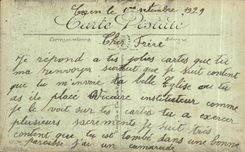 le 1er 1929
Carte Postale
Correspondance
Cher Frère
Je répond a tes jolies cartes que tu
ma renvoyer sachat que je suit content
que tu m'invoie la belle Eglise ou tu
as été placé Vicaire instituteur comme
je le voit sur tes cartes tu a exercer
plusieurs sacrements Je suit très
content que tu est tombé dans une bonne
paroisse j'ai un camarade